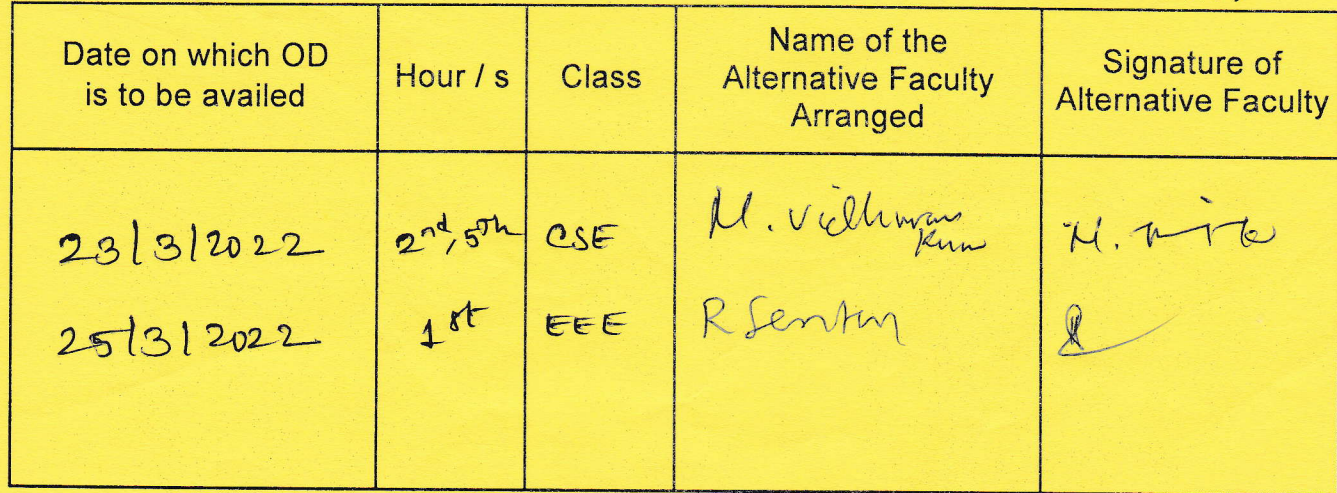 Date on which OD
is to be availed
Hour / s
Class
Name of the
Alternative Faculty
Arranged
Signature of
Alternative Faculty
23/3/2022 2nd, 5th CSE M.
25/3/2022 1st EEE R